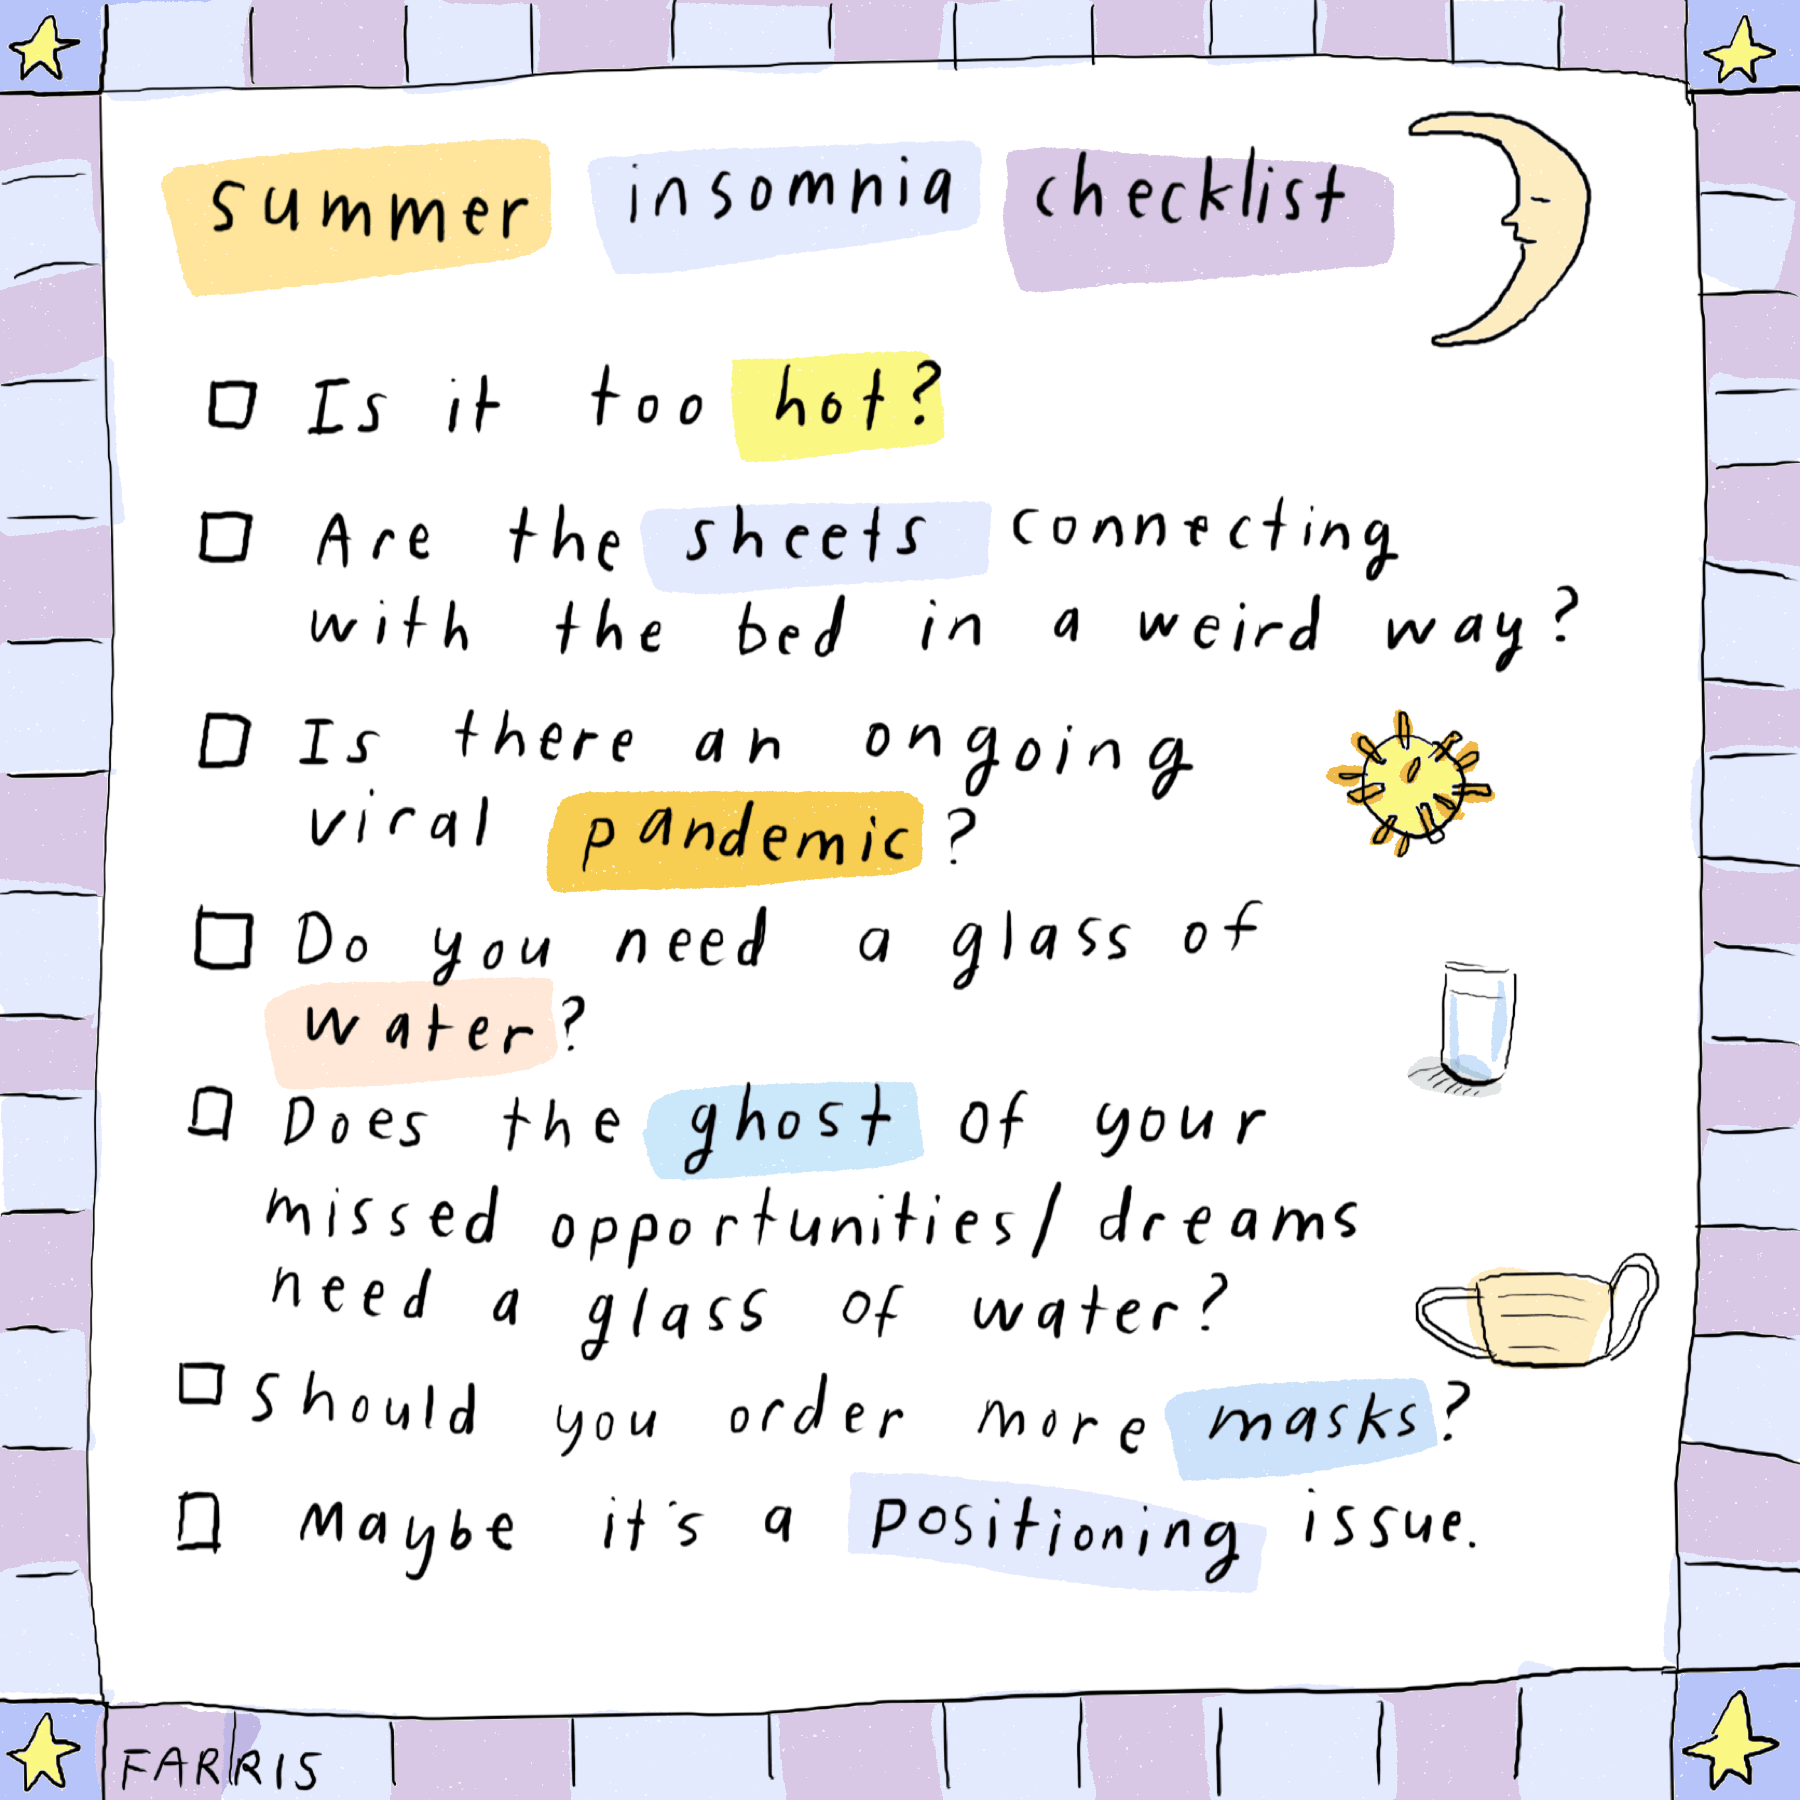 summer insomnia checklist
Is it too hot?
Are the sheets connecting
with the bed in a weird way?
Is there an ongoing
viral pandemic?
Do you need a glass of
water?
Does the ghost of your
missed opportunities/dreams
need a glass of water?
Should you order more masks?
Maybe it's a positioning issue.
FARRIS